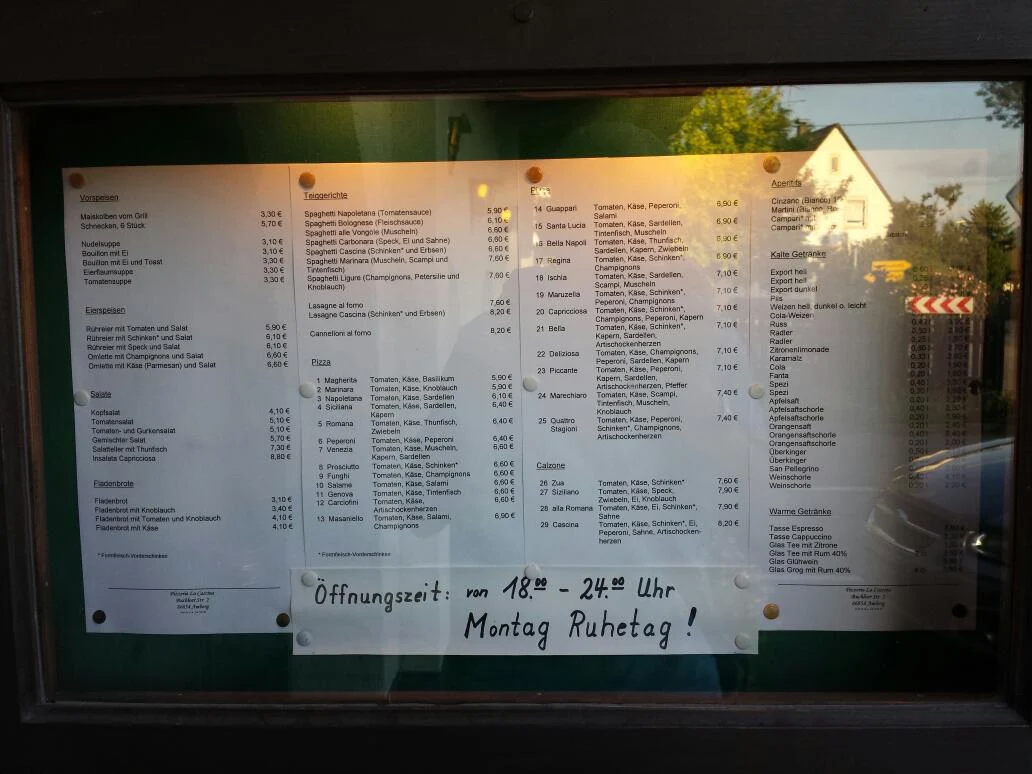 Vorspeisen
Maiskolben vom Grill 3,30 €
Schnecken, 6 Stück 5,70 €
Nudelsuppe 3,10 €
Bouillon mit Ei 3,10 €
Bouillon mit Ei und Toast 3,30 €
Eierflaumsuppe 3,30 €
Tomatensuppe 3,30 €
Eierspeisen
Rühreier mit Tomaten und Salat 5,90 €
Rühreier mit Schinken* und Salat 6,10 €
Rühreier mit Speck und Salat 6,10 €
Omlette mit Champignons und Salat 6,60 €
Omlette mit Käse (Parmesan) und Salat 6,60 €
Salate
Kopfsalat 4,10 €
Tomatensalat 5,10 €
Tomaten- und Gurkensalat 5,10 €
Gemischter Salat 5,70 €
Salatteller mit Thunfisch 7,30 €
Insalata Capricciosa 8,80 €
Fladenbrote
Fladenbrot 3,10 €
Fladenbrot mit Knoblauch 3,40 €
Fladenbrot mit Tomaten und Knoblauch 4,10 €
Fladenbrot mit Käse 4,10 €
* Formfleisch-Vorderschinken
Pizzeria La Cascina
Buchloer Str. 2
86854 Amberg
Teiggerichte
Spaghetti Napoletana (Tomatensauce) 5,90 €
Spaghetti Bolognese (Fleischsauce) 6,10 €
Spaghetti alle Vongole (Muscheln) 6,60 €
Spaghetti Carbonara (Speck, Ei und Sahne) 6,60 €
Spaghetti Cascina (Schinken* und Erbsen) 6,60 €
Spaghetti Marinara (Muscheln, Scampi und 7,60 €
Tintenfisch)
Spaghetti Ligure (Champignons, Petersilie und 7,60 €
Knoblauch)
Lasagne al forno 7,60 €
Lasagne Cascina (Schinken* und Erbsen) 8,20 €
Cannelloni al forno 8,20 €
Pizza
1 Magherita Tomaten, Käse, Basilikum 5,90 €
2 Marinara Tomaten, Käse, Knoblauch 5,90 €
3 Napoletana Tomaten, Käse, Sardellen 6,10 €
4 Siciliana Tomaten, Käse, Sardellen, 6,40 €
Kapern
5 Romana Tomaten, Käse, Thunfisch, 6,40 €
Zwiebeln
6 Peperoni Tomaten, Käse, Peperoni 6,40 €
7 Venezia Tomaten, Käse, Muscheln, 6,60 €
Kapern, Sardellen
8 Prosciutto Tomaten, Käse, Schinken* 6,60 €
9 Funghi Tomaten, Käse, Champignons 6,60 €
10 Salame Tomaten, Käse, Salami 6,60 €
11 Genova Tomaten, Käse, Tintenfisch 6,60 €
12 Carciofini Tomaten, Käse, 6,60 €
Artischockenherzen
13 Masaniello Tomaten, Käse, Salami, 6,90 €
Champignons
* Formfleisch-Vorderschinken
14 Guappari Tomaten, Käse, Peperoni, 6,90 €
Salami
15 Santa Lucia Tomaten, Käse, Sardellen, 6,90 €
Tintenfisch, Muscheln
16 Bella Napoli Tomaten, Käse, Thunfisch, 6,90 €
Sardellen, Kapern, Zwiebeln
17 Regina Tomaten, Käse, Schinken*, 6,90 €
Champignons
18 Ischia Tomaten, Käse, Sardellen, 7,10 €
Scampi, Muscheln
19 Maruzella Tomaten, Käse, Schinken*, 7,10 €
Peperoni, Champignons
20 Capricciosa Tomaten, Käse, Schinken*, 7,10 €
Champignons, Peperoni, Kapern
21 Bella Tomaten, Käse, Schinken*, 7,10 €
Kapern, Sardellen,
Artischockenherzen
22 Deliziosa Tomaten, Käse, Champignons, 7,10 €
Peperoni, Sardellen, Kapern
23 Piccante Tomaten, Käse, Peperoni, 7,10 €
Kapern, Sardellen,
Artischockenherzen, Pfeffer
24 Marechiaro Tomaten, Käse, Scampi, 7,40 €
Tintenfisch, Muscheln,
Knoblauch
25 Quattro Tomaten, Käse, Peperoni, 7,40 €
Stagioni Schinken*, Champignons,
Artischockenherzen
Calzone
26 Zua Tomaten, Käse, Schinken* 7,60 €
27 Siziliano Tomaten, Käse, Speck, 7,90 €
Zwiebeln, Ei, Knoblauch
28 alla Romana Tomaten, Käse, Ei, Schinken*, 7,90 €
Sahne
29 Cascina Tomaten, Käse, Schinken*, Ei, 8,20 €
Peperoni, Sahne, Artischocken-
herzen
Aperitifs
Cinzano (Bianco)
Martini (Bianco,
Campari
Campari
Kalte Getränke
Export hell
Export hell
Export dunkel
Pils
Weizen hell, dunkel o. leicht
Cola-Weizen
Russ
Radler
Radler
Zitronenlimonade
Karamalz
Cola
Fanta
Spezi
Spezi
Apfelsaft
Apfelsaftschorle
Apfelsaftschorle
Orangensaft
Orangensaftschorle
Orangensaftschorle
Überkinger
Überkinger
San Pellegrino
Weinschorle
Weinschorle
Warme Getränke
Tasse Espresso
Tasse Cappuccino
Glas Tee mit Zitrone
Glas Tee mit Rum 40%
Glas Glühwein
Glas Grog mit Rum 40%
Pizzeria La Cascina
Buchloer Str. 2
86854 Amberg
Öffnungszeit: von 18.00 - 24.00 Uhr
Montag Ruhetag !